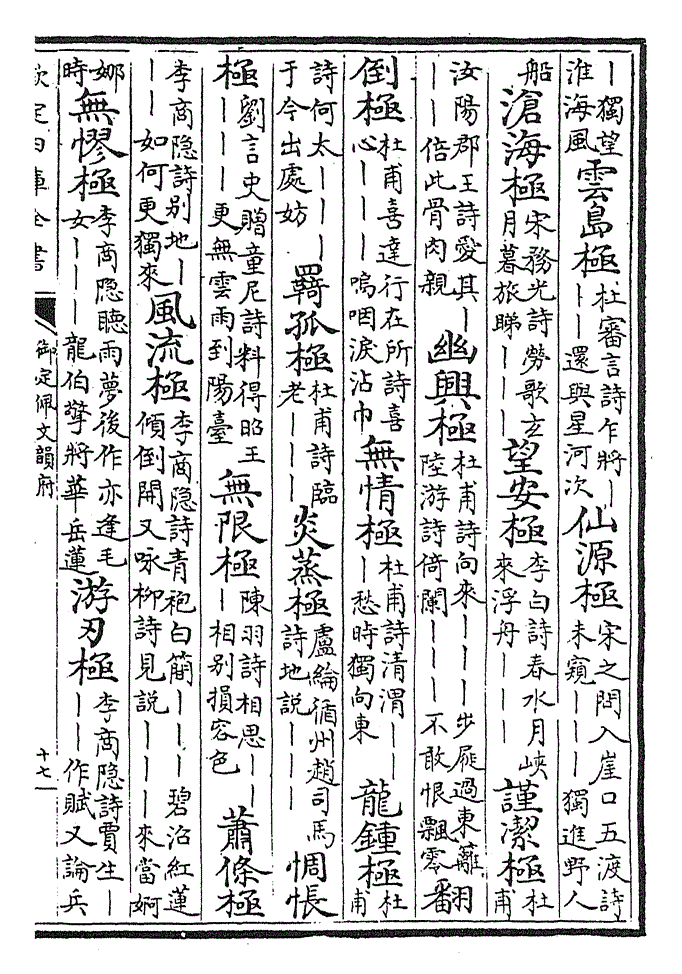 丨獨望淮海風雲島極杜審言詩乍將丨丨丨還與星河次仙源極宋之問入崖口五渡詩未窺丨丨丨獨進野人
船滄海極宋務光詩勞歌玄月暮旅睇丨丨丨望安極李白詩春水月峽來浮舟丨丨丨謹潔極杜甫
汝陽郡王詩愛其丨丨丨倍此骨肉親幽興極杜甫詩向來丨丨丨步屧過東籬陸游詩倚闌丨丨丨不敢恨飄零翻
倒極杜甫喜達行在所詩喜心丨丨丨嗚咽淚沾巾無情極杜甫詩清渭丨丨丨愁時獨向東龍鍾極杜甫
詩何太丨丨丨于今出處妨羇孤極杜甫詩臨老丨丨丨炎蒸極盧綸循州趙司馬詩地說丨丨丨惆悵
極劉言史贈童尼詩料得昭王丨丨丨更無雲雨到陽臺無限極陳羽詩相思丨丨丨相别損容色蕭條極
李商隐詩别地丨丨丨如何更獨來風流極李商隐詩青袍白簡丨丨丨碧沼紅蓮傾倒開又咏柳詩見説丨丨丨來當婀
娜時無憀極李商隐聽雨夢後作亦逢毛女丨丨丨龍伯擎將華岳蓮游刃極李商隐詩賈生丨丨丨作賦又論兵
欽定四庫全書 御定佩文韻府 十七